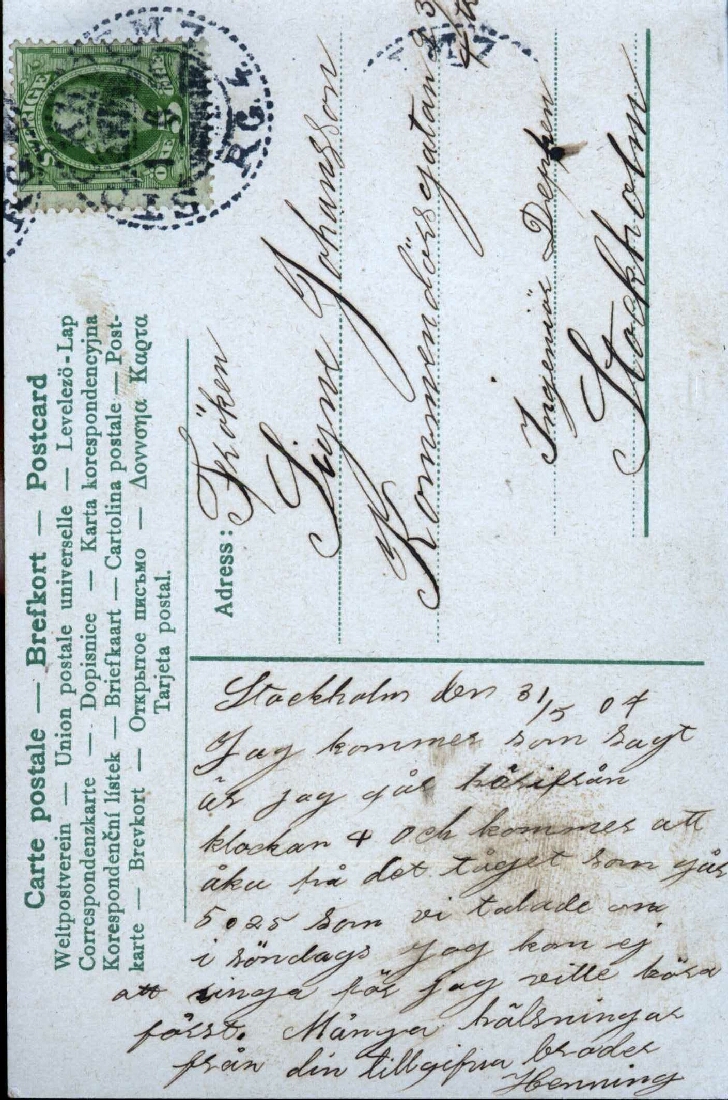 Carte postale — Brefkort — Postcard
Weltpostverein — Union postale universelle — Levelezö-Lap
Correspondenzkarte — Dopisnice — Karta korespondencyjna
Korespondenční lístek — Briefkaart — Cartolina postale — Post-
karte — Brevkort — Открытое письмо — Δοννοηα Καρτα
Tarjeta postal.
SVERIGE
5
Adress: Fröken
Signe Johansson
Kommendörsgatan 23
4 tr
Ingeniör
Stockholm
Stockholm den 31/5 04
Jag kommer som sagt
är jag går härifrån
klockan 4 och kommer att
åka på det tåget som går
5.025 som vi talade om
i söndags jag kan ej
att ringa för jag ville höra
först. Många hälsningar
från din tillgifna broder
Henning